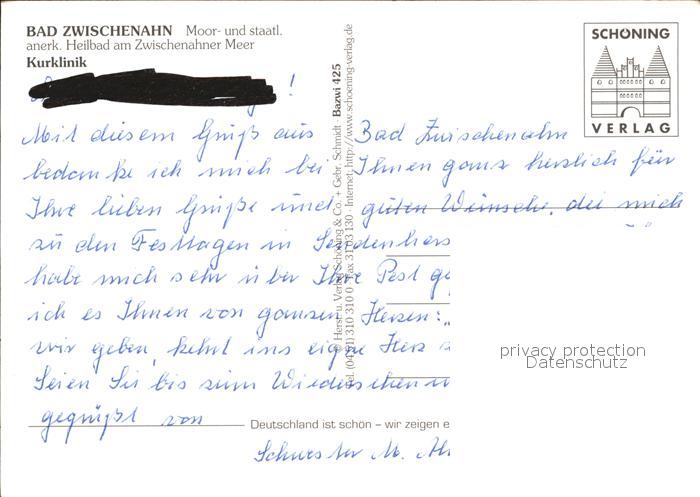 BAD ZWISCHENAHN Moor- und staatl.
anerk. Heilbad am Zwischenahner Meer
Kurklinik
!
Mit diesem Gruß aus Bad Zwischenahn
bedanke ich mich bei Ihnen ganz herzlich für
Ihre lieben Grüße und guten Wünsche, die mich
zu den Festtagen in
habe mich sehr über Ihre Post
ich es Ihnen von ganzem Herzen: „
wir geben, kehrt ins eigne Herz
Seien Sie bis zum Wiedersehen
gegrüßt von
Schwester M.
Deutschland ist schön – wir zeigen e
© Herst. u. Verlag Schöning & Co. + Gebr. Schmidt Bazwi 425
Tel. (0451) 310 310 0 Fax 31 03 130 - Internet: http://www.schoening-verlag.de
SCHÖNING
VERLAG
privacy protection
Datenschutz